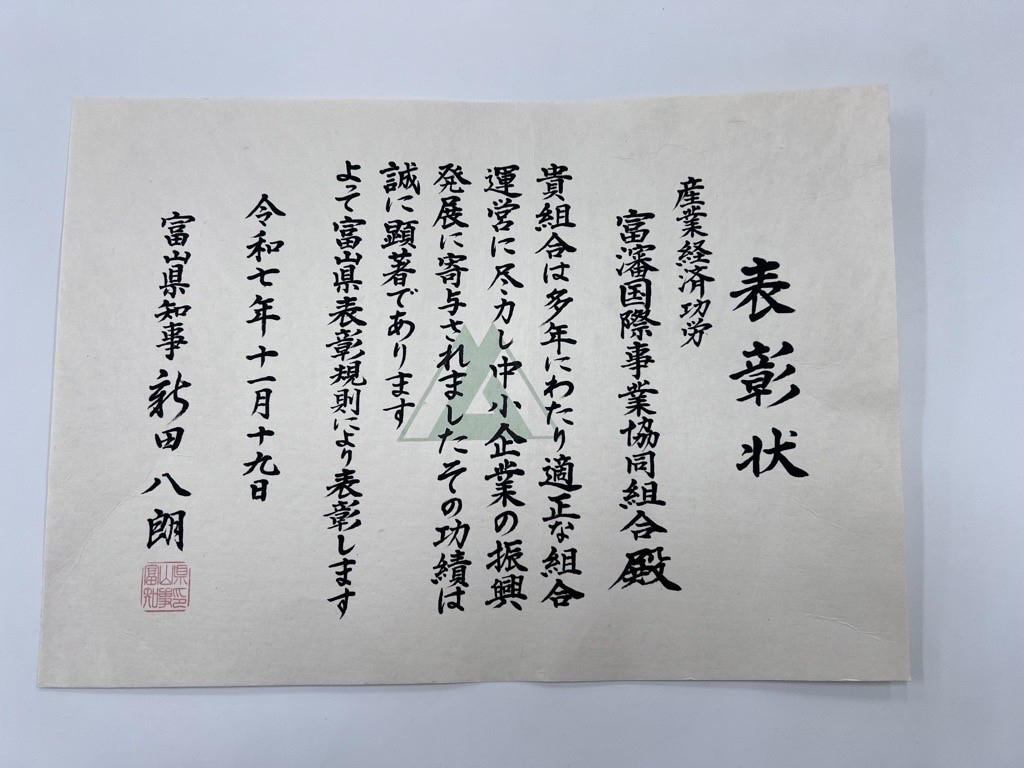 表彰状
産業経済功労
富瀋国際事業協同組合殿
貴組合は多年にわたり適正な組合
運営に尽力し中小企業の振興
発展に寄与されましたその功績は
誠に顕著であります
よって富山県表彰規則により表彰します
令和七年十一月十九日
富山県知事 新田八朗
富山県知事印